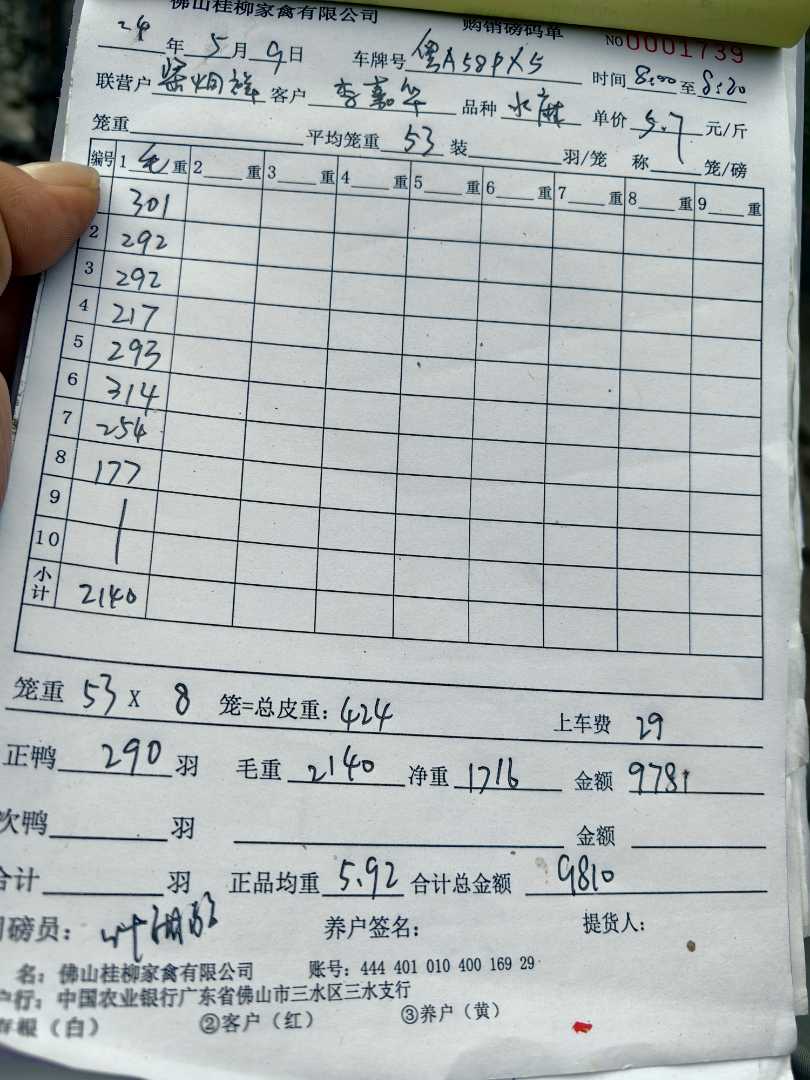 佛山桂柳家禽有限公司 购销磅码单 NO 0001739
24年5月9日 车牌号 粤A58PX5 时间8:00至8:20
联营户 客户 李嘉华 品种 水麻 单价 5.7 元/斤
笼重 平均笼重 53 装 羽/笼 称 笼/磅
编号 1 毛 重 2 重 3 重 4 重 5 重 6 重 7 重 8 重 9 重
301
2 292
3 292
4 217
5 293
6 314
7 254
8 177
9
10
小计 2140
笼重 53 X 8 笼=总皮重: 424 上车费 29
正鸭 290 羽 毛重 2140 净重 1716 金额 9781
次鸭 羽 金额
合计 羽 正品均重 5.92 合计总金额 9810
磅员: 养户签名: 提货人:
名: 佛山桂柳家禽有限公司 账号: 444 401 010 400 169 29
户行: 中国农业银行广东省佛山市三水区三水支行
存根(白) ②客户(红) ③养户(黄)